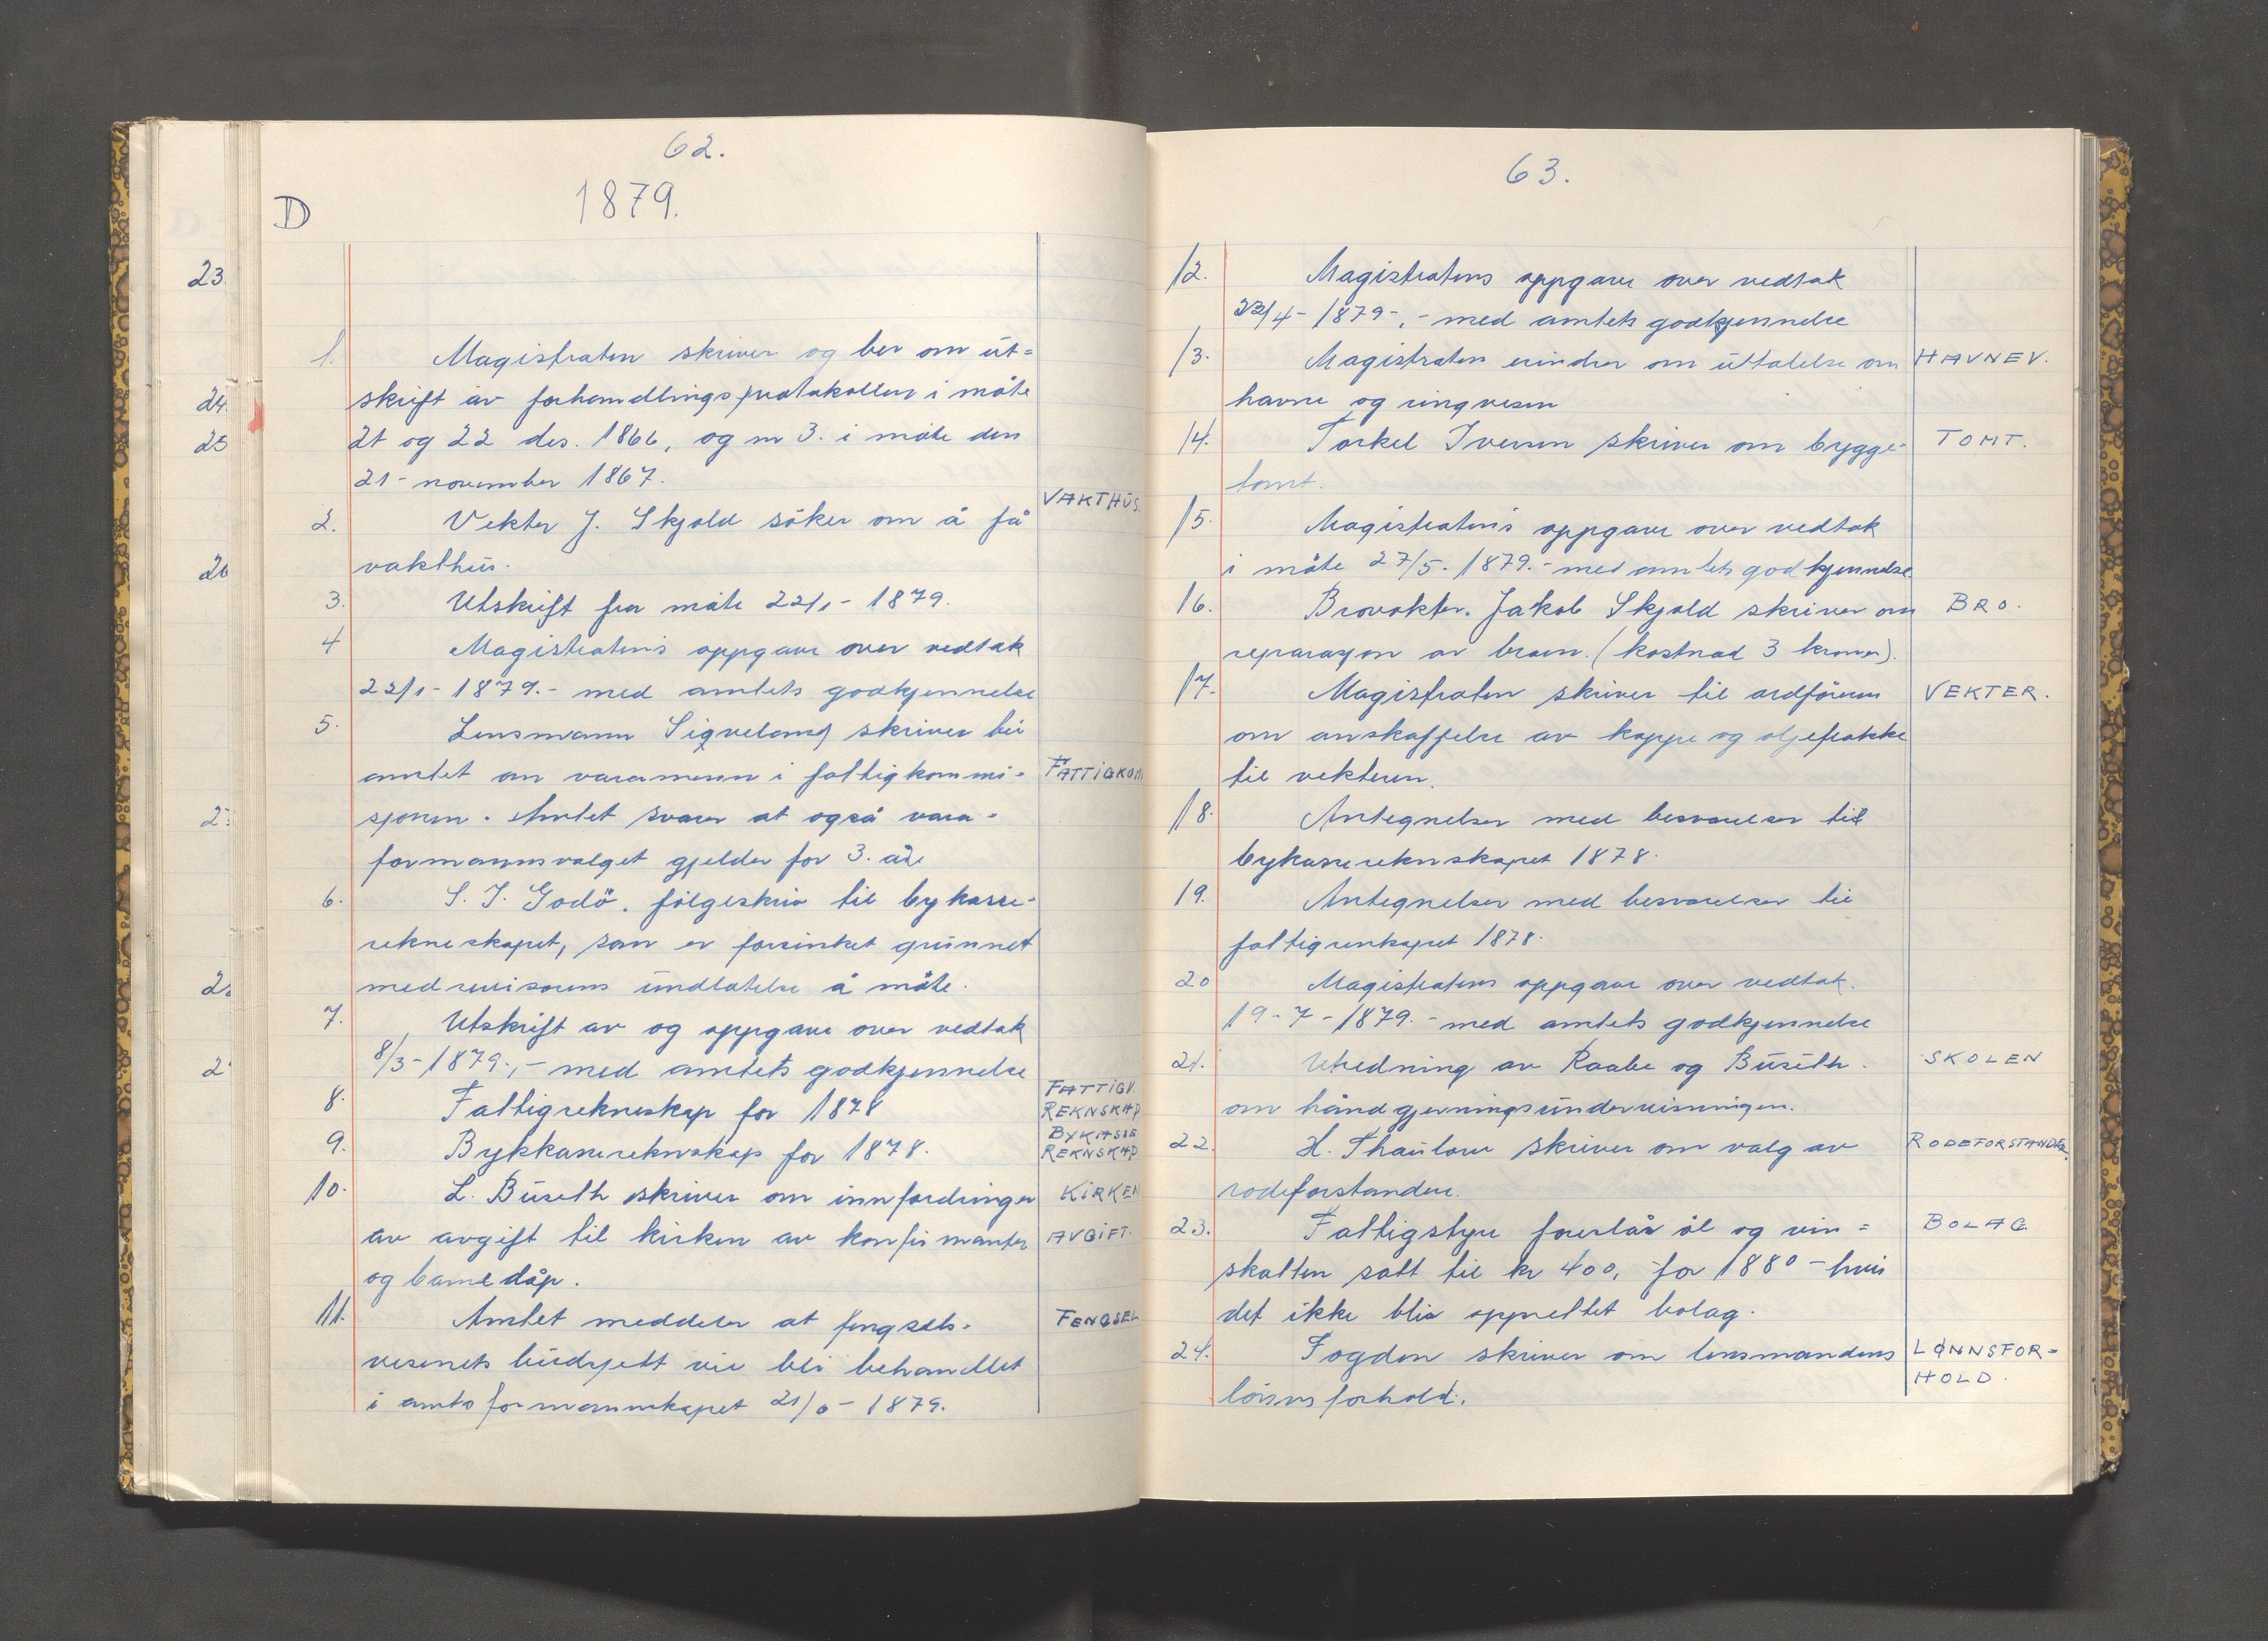 62.
D
1879.
23.
24.
25
26
1. Magistraten skriver og ber om ut=
skrift av forhandlingsprotokollen i möte
21 og 22 des. 1866, og nr 3. i möte den
21-november 1867.
VAKTHUS.
2. Vekter J. Skjold söker om å få
vakthus.
3. Utskrift fra möte 22/1- 1879.
4 Magistratens oppgave over vedtak
22/1- 1879.- med amtets godkjennelse
5. Lensmann Sigveland skriver til
amtet om varamenn i fattigkommi- FATTIGKOM
sjonen. Amtet svarer at også vara-
formannsvalget gjelder for 3. år
6. S. I. Godö. fölgeskriv til bykasse-
rekneskapet, som er forsinket grunnet
med revisorens undlatelse å möte.
7. Utskrift av og oppgave over vedtak
8/3- 1879,- med amtets godkjennelse
8. Fattigrekneskap for 1878 FATTIGV. REKNSKAP
9. Bykkasserekneskap for 1878. BYKASSE REKNSKAP
10. L. Buseth skriver om innfordringer KIRKEN
av avgift til kirken av konfirmanter AVGIFT.
og barnedåp.
11. Amtet meddeler at fengsels- FENGSEL
vesenets budsjett vil bli behandlet
i amtsformannskapet 21/6- 1879.
63.
12. Magistratens oppgave over vedtak
22/4- 1879-,- med amtets godkjennelse
13. Magistraten erindrer om uttalelse om HAVNEV.
havne og ringvesen
14. Torkel Iversen skriver om bygge- TOMT.
tomt.
15. Magistratens oppgave over vedtak
i möte 27/5. 1879.- med amtets godkjennelse.
16. Brovokter. Jakob Skjold skriver om BRO.
reparasjon av broen. (kostnad 3 kroner).
17. Magistraten skriver til ordföreren VEKTER.
om anskaffelse av kappe og oljefrakke
til vekteren.
18. Antegnelser med besvarelser til
bykasserekneskapet 1878.
19. Antegnelser med besvarelser til
fattigrenskapet 1878.
20 Magistratens oppgave over vedtak.
19-7-1879.- med amtets godkjennelse
21. Utredning av Raabe og Buseth. SKOLEN
om håndgjerningsundervisningen.
22. H. Thaulow skriver om valg av RODEFORSTANDER.
rodeforstander.
23. Fattigstyre foreslår öl og vin= BOLAG.
skatten satt til kr 400, for 1880 - hvis
det ikke blir opprettet bolag.
24. Fogden skriver om lensmandens LØNNSFOR=
HOLD.
lönnsforhold.